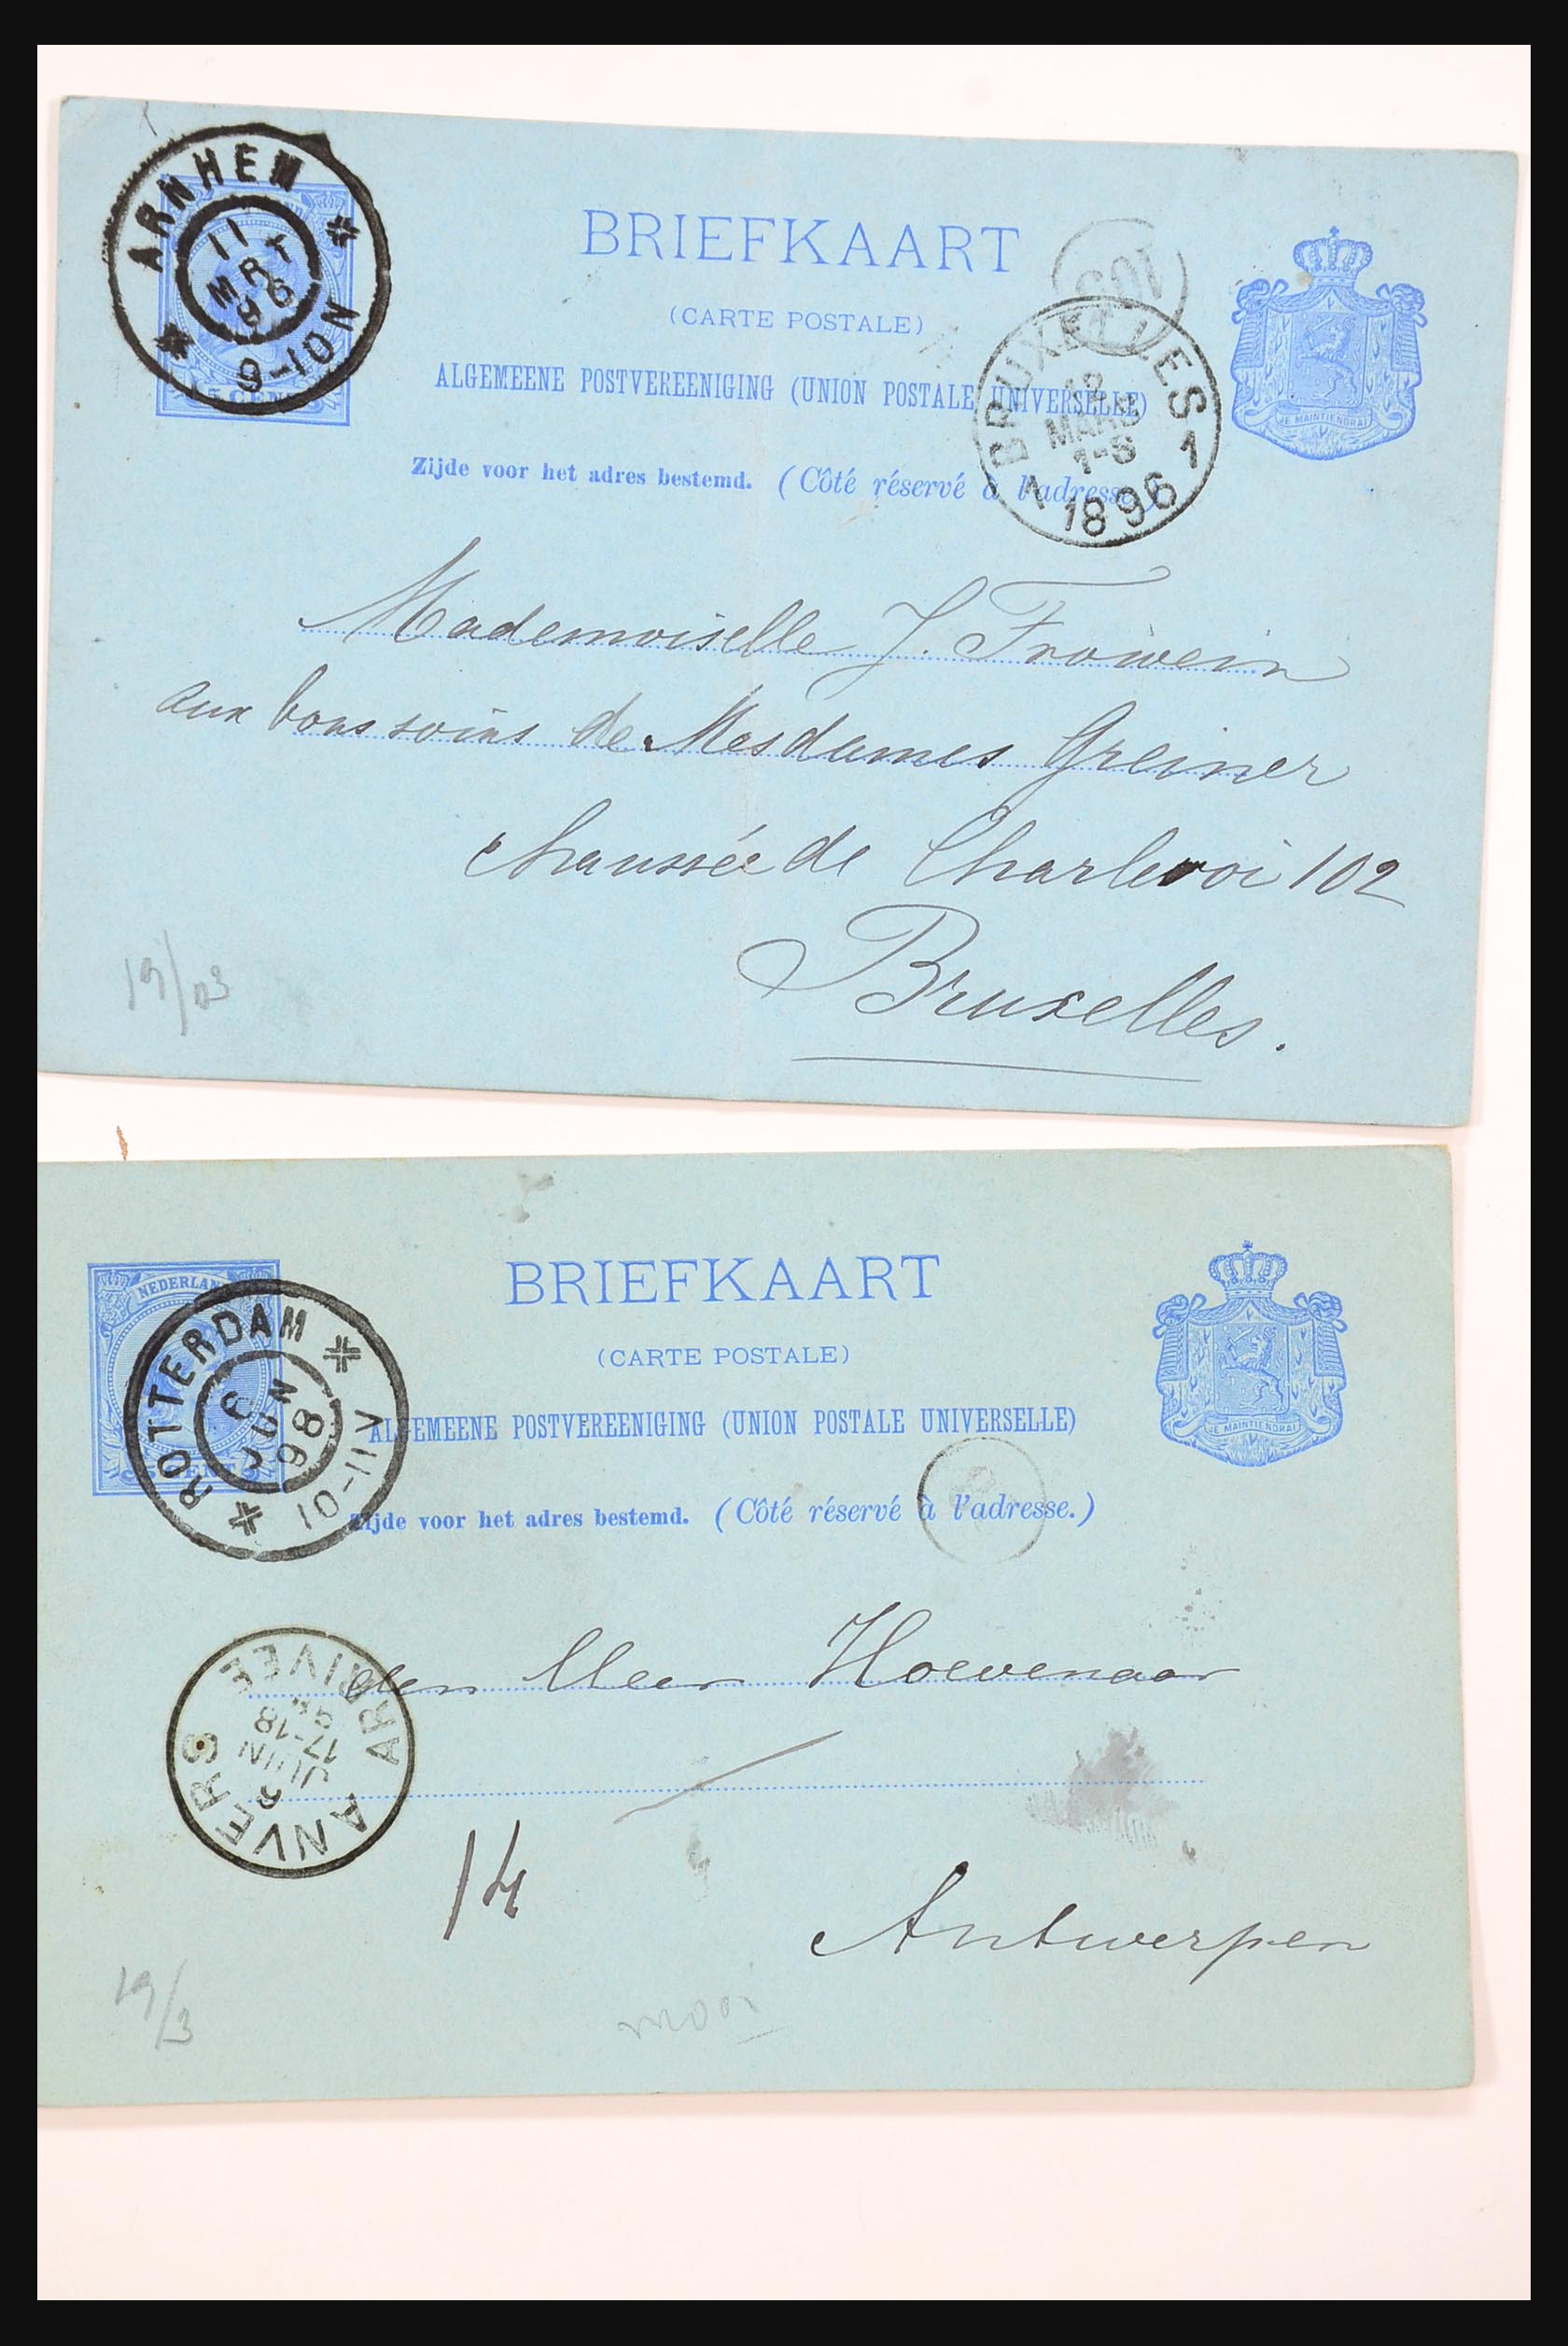 ARNHEM
11
MRT
96
9-10N
5 CENT
BRIEFKAART
(CARTE POSTALE)
ALGEMEENE POSTVEREENIGING (UNION POSTALE UNIVERSELLE)
Zijde voor het adres bestemd. (Côté réservé à l'adresse.)
BRUXELLES
12
MARS
1-S
1 1896 1
JE MAINTIENDRAI
Mademoiselle J. Frowein
aux bons soins de Mesdames Greiner
chaussée de Charleroi 102
Bruxelles.
19/03
NEDERLAND
ROTTERDAM
6
JUN
98
10-11V
CENT
BRIEFKAART
(CARTE POSTALE)
ALGEMEENE POSTVEREENIGING (UNION POSTALE UNIVERSELLE)
Zijde voor het adres bestemd. (Côté réservé à l'adresse.)
JE MAINTIENDRAI
ANVERS ARRIVEE
6
JUIN
17-18
den Heer Hoevenaar
14
Antwerpen
19/3
mooi